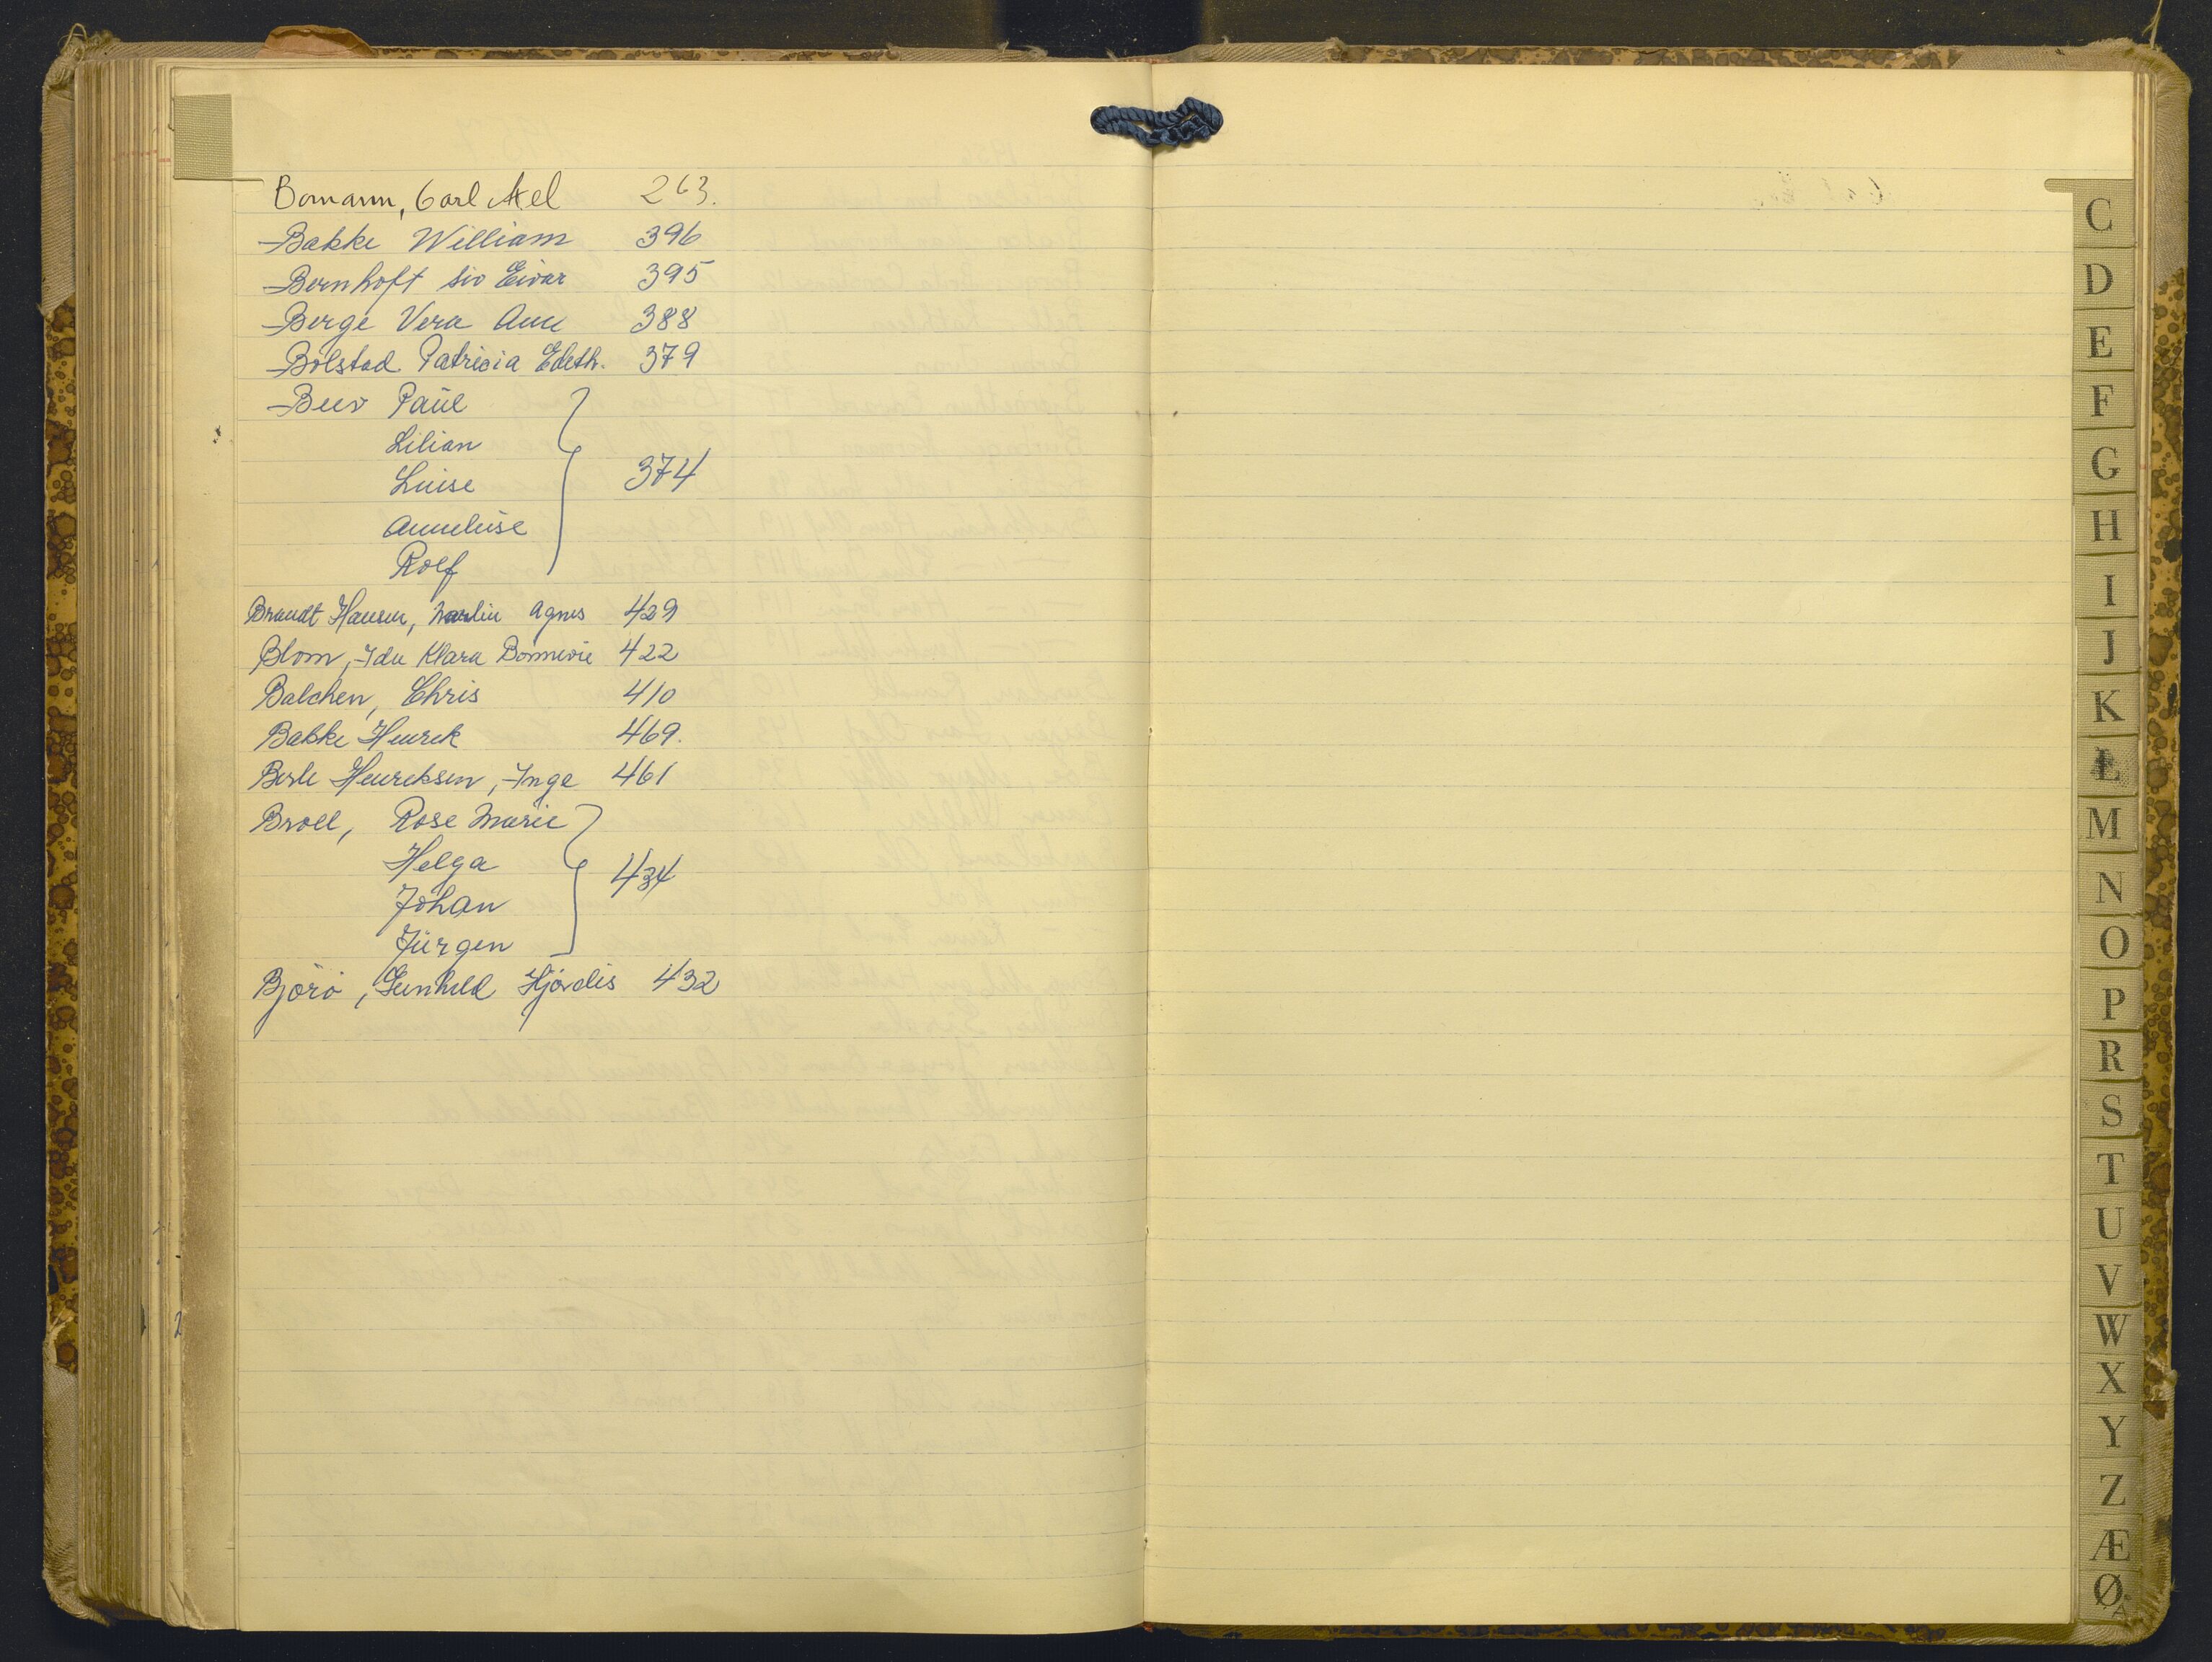 Bomann, Carl Axel 263.
Bakke William 396
Bernhoft Siv Eivor 395
Berge Vera Ann 388
Bolstad Patricia Edith. 379
Beer Paul
Lilian
Luise 374
Anneluise
Rolf
Brandt Hansen, Agnes 429
Blom, Ida Klara Bonnevie 422
Balchen, Chris 410
Bakke Henrik 469.
Berle Henriksen, Inge 461
Broll, Rose Marie
Helga
434
Johan
Jürgen
Björö, Gunhild Hjördis 432
C
D
E
F
G
H
I
J
K
L
M
N
O
P
R
S
T
U
V
W
X
Y
Z
Æ
Ø
Å